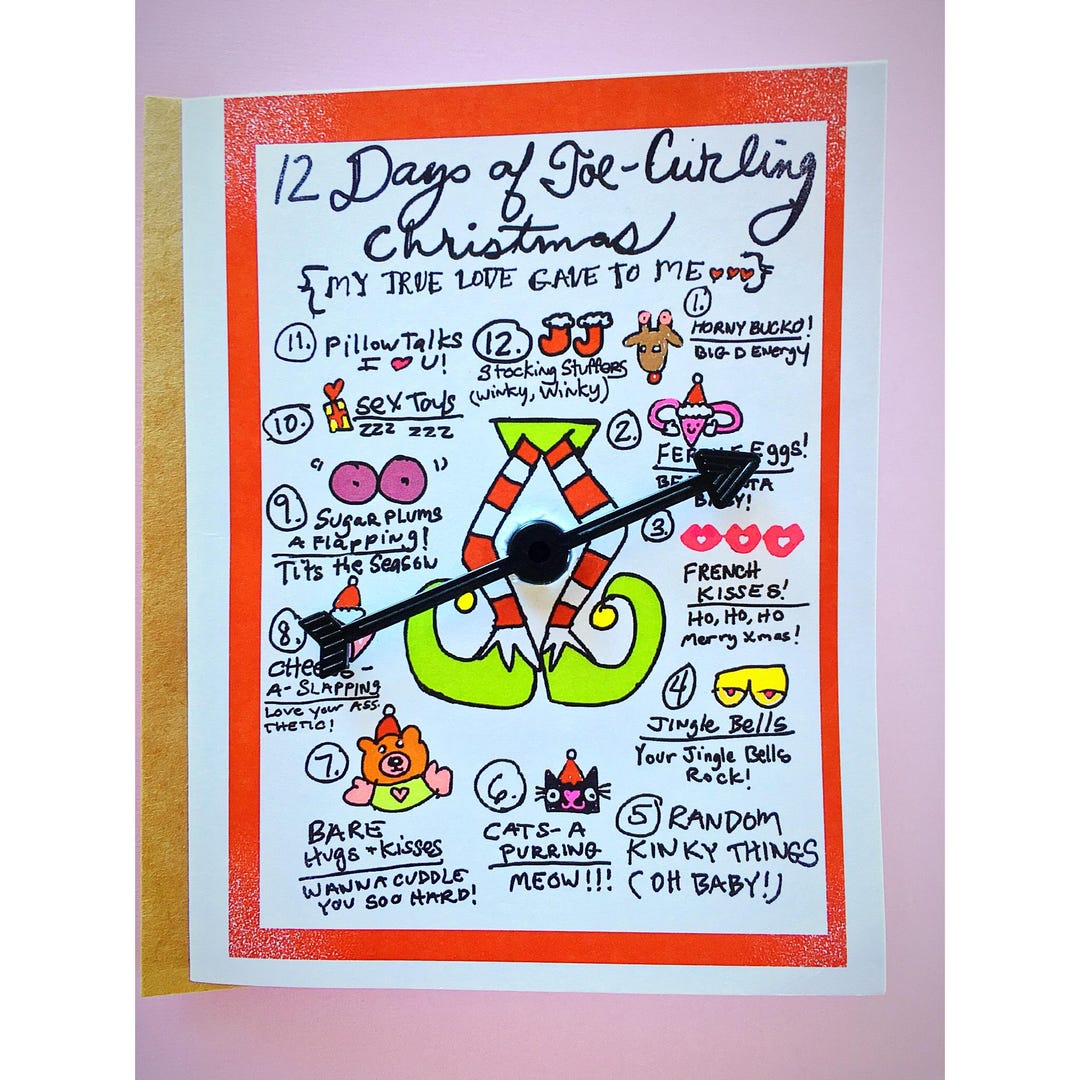 12 Days of Toe-Curling
Christmas
{MY TRUE LOVE GAVE TO ME}
1.
HORNY BUCKO!
BIG D ENERGY
2.
Eggs!
BABY!
3.
FRENCH
KISSES!
HO, HO, HO
Merry Xmas!
4
JINGLE Bells
Your Jingle Bells
Rock!
5 RANDOM
KINKY THINGS
(OH BABY!)
6.
CATS-A
PURRING
MEOW!!!
7.
BARE
Hugs + Kisses
WANNA CUDDLE
YOU SOO HARD!
8.
A-SLAPPING
Love your ASS.
THETIC!
9.
" "
SugaR PLUMS
A Flapping!
Tits the Season
10.
Sex Toys
ZZZ ZZZ
11. Pillow Talks
I ❤ U!
12.
Stocking Stuffers
(Winky, Winky)